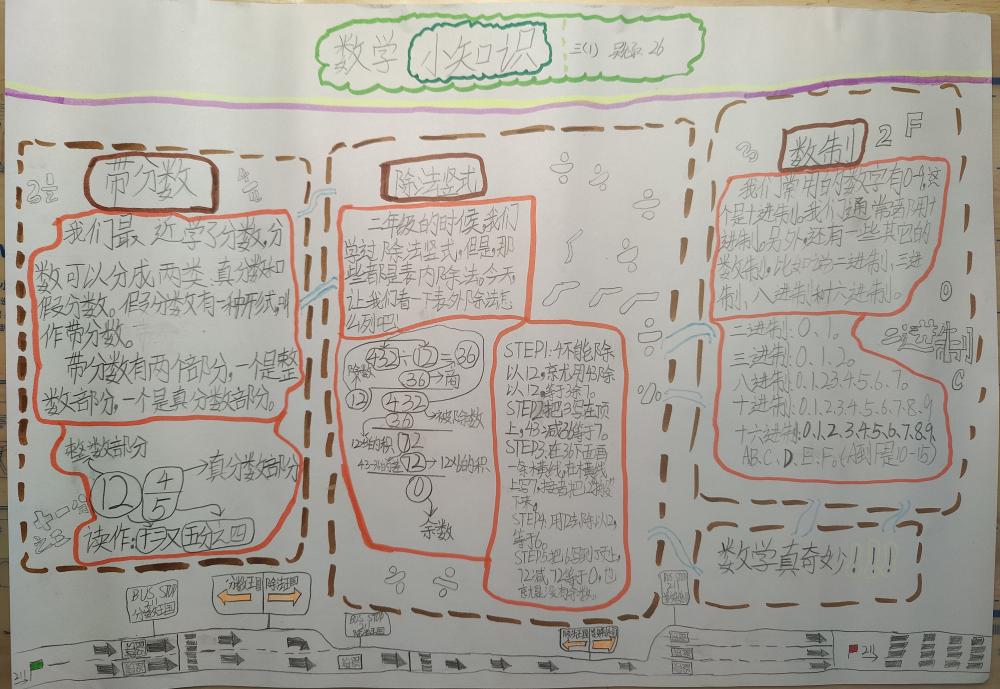 数学 小知识
三(1)
26
带分数
我们最近学了分数,分
数可以分成两类,真分数如
假分数。假分数有一种形式,叫
作带分数。
带分数有两个部分,一个是整
数部分,一个是真分数部分。
整数部分
12 4/5 →真分数部分
读作:十二又五分之四
除法竖式
二年级的时候,我们
学过除法竖式,但是,那
些都是表内除法。今天,
让我们看一下表外除法怎
么列吧!
432÷12=36
除数
36→商
12
432
36→被除数
12×3的积
72
72→12×6的积
0
余数
STEP1:4不能除
以12,就用43除
以12,等于3余7。
STEP2:把3写在顶
上,43减36等于7。
STEP3:在36下面再
一条横线,在横线
上写7,接着把2"搬"
下来。
STEP4:用72去除以12,
等于6。
STEP5:把6写到顶上,
72减72等于0,也
就是没有余数。
数制
2
F
我们常用的数字有0-9,这
个是十进制。我们通常都用十
进制。另外,还有一些其它的
数制。比如说二进制、三进
制、八进制和十六进制。
二进制:0、1。
三进制:0、1、2。
八进制:0、1、2、3、4、5、6、7。
十进制:0、1、2、3、4、5、6、7、8、9
十六进制:0、1、2、3、4、5、6、7、8、9、
A、B、C、D、E、F。(A到F是10-15)
二进制
0
C
数学真奇妙!!!
BUS STOP
211
分数王国
分数王国
除法王国
BUS STOP
211
除法王国
除法王国
数制王国
BUS STOP
211
211
211